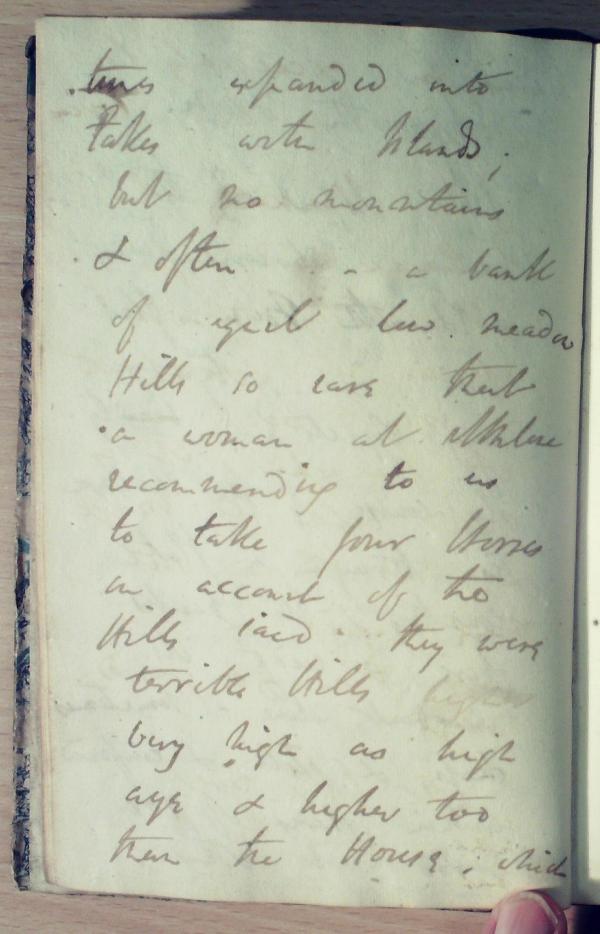 times expanded into
Lakes with Islands;
but no mountains
& often - a bank
of equal low meadow
Hills so rare that
a woman at Athlone
recommending to us
to take four Horses
on account of the
Hills said they were
terrible Hills higher
very high as high
aye & higher too
than the House; which